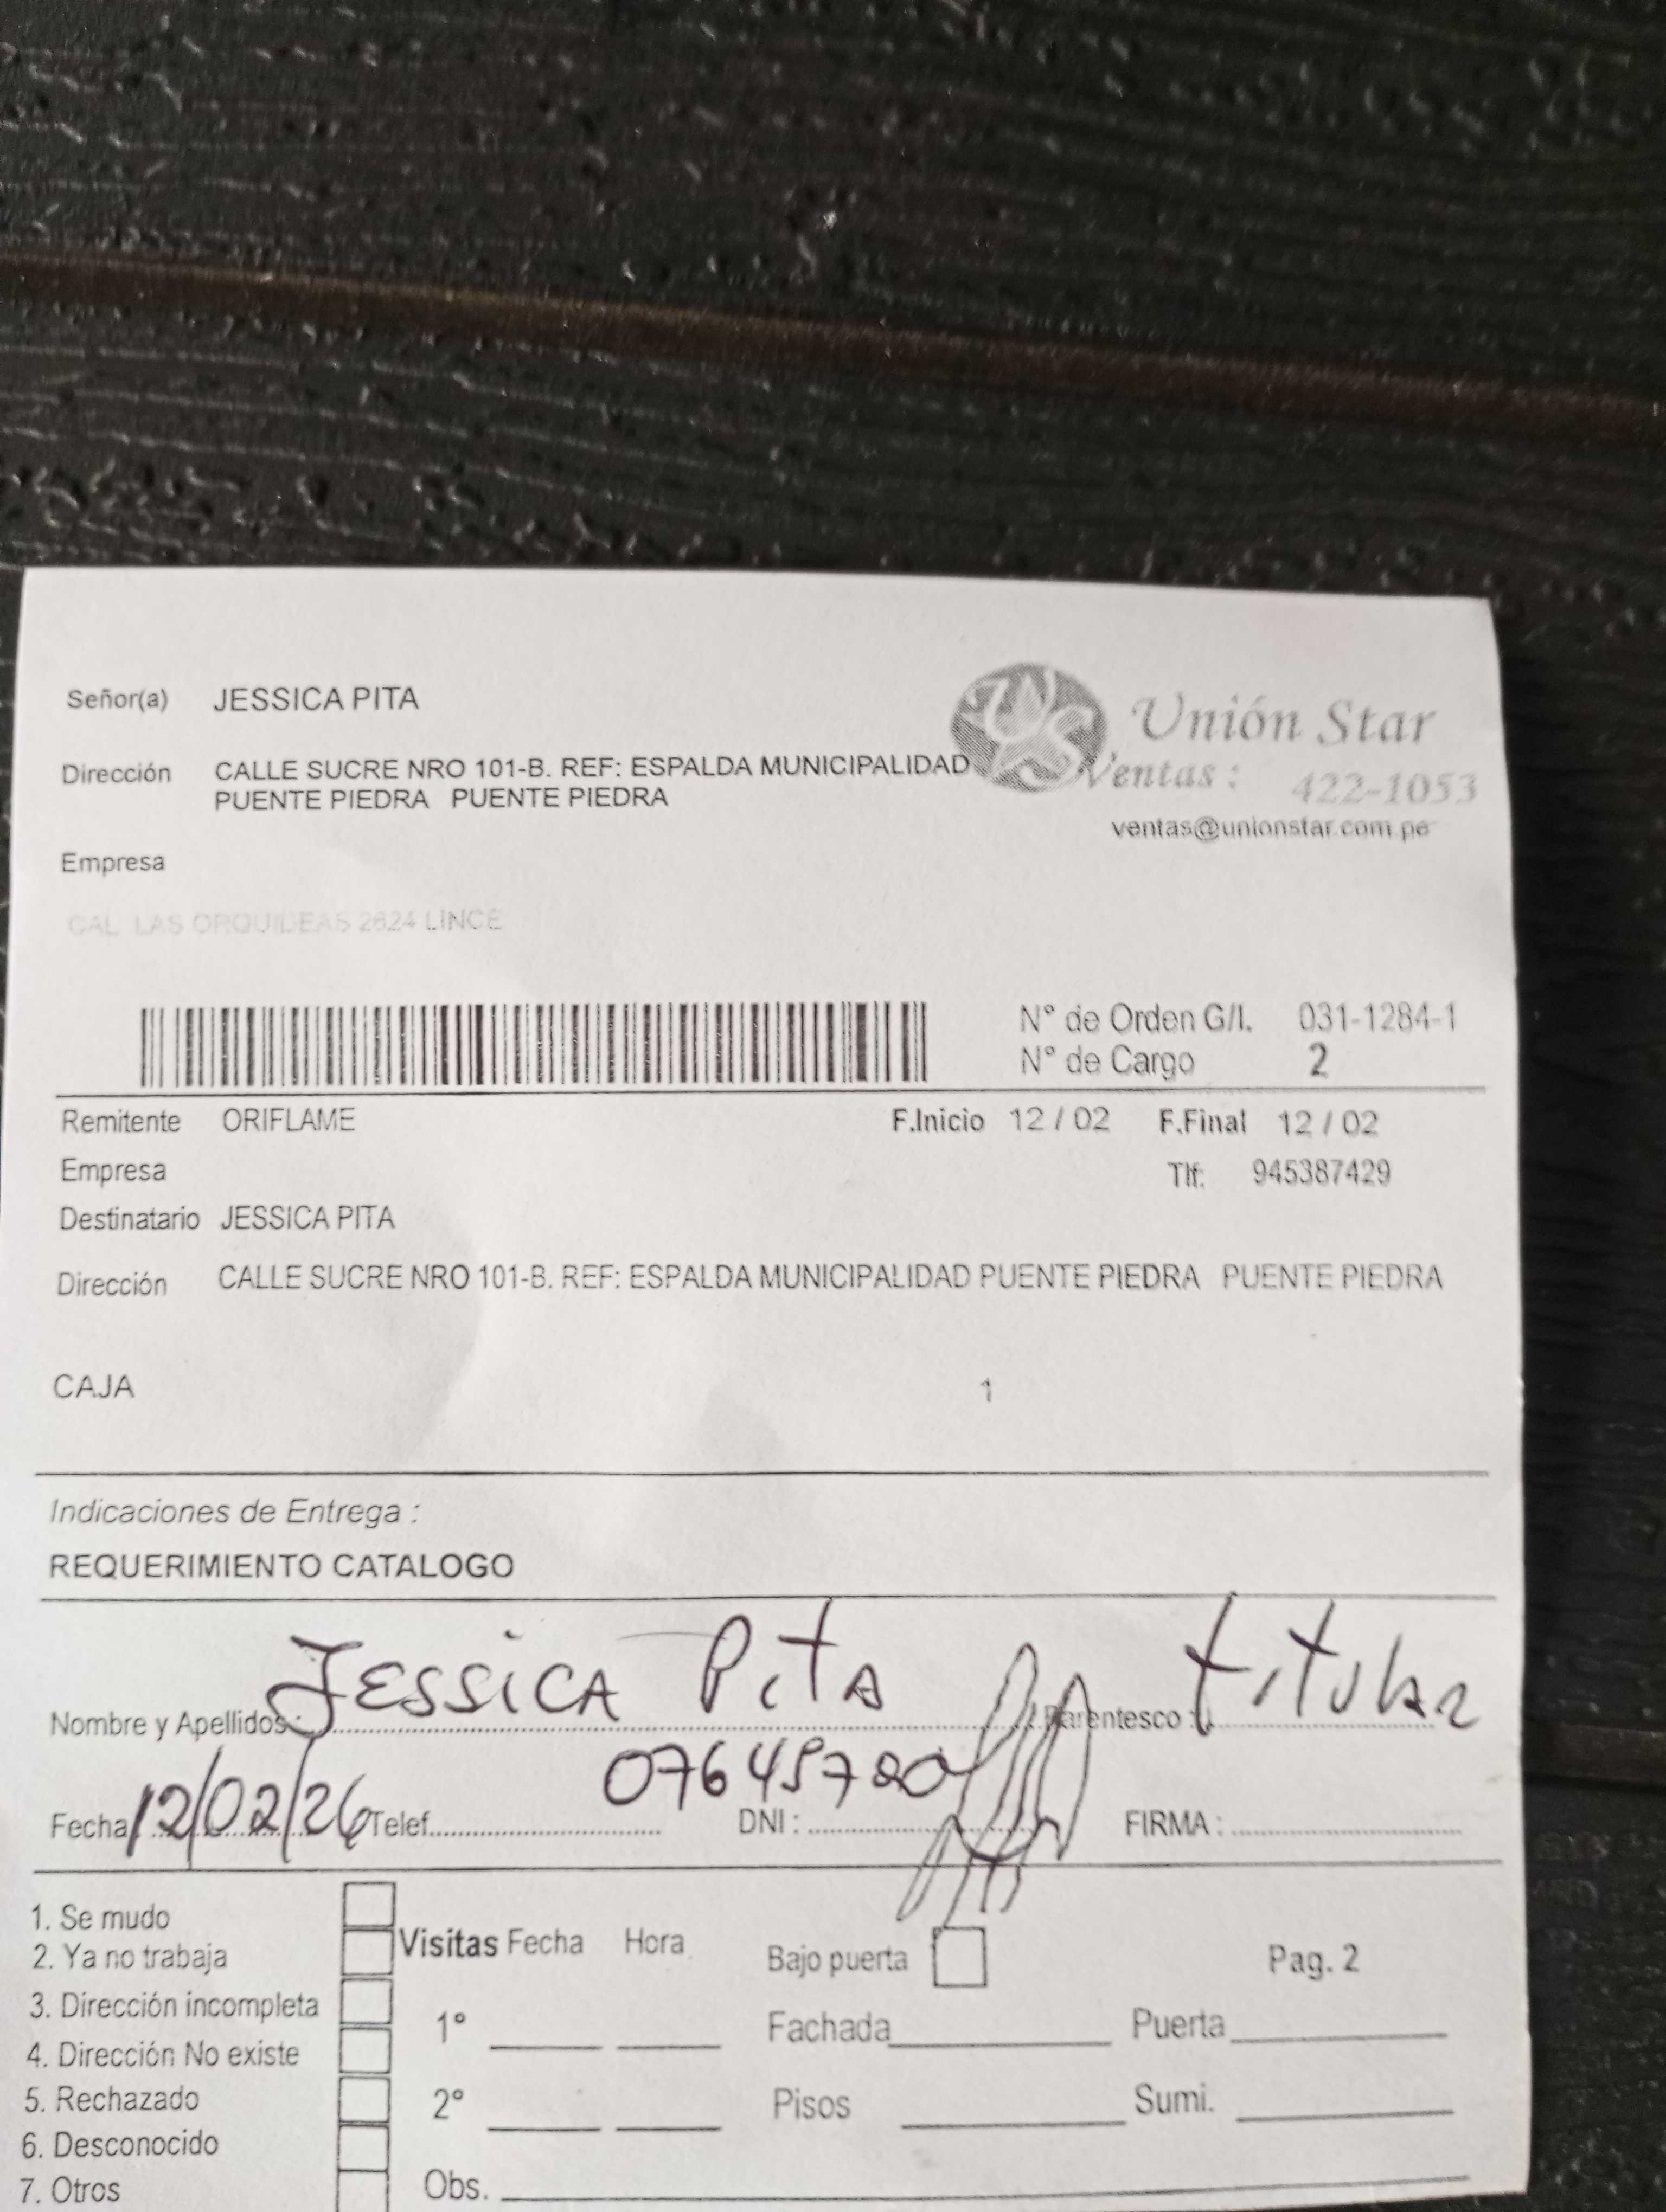 Señor(a) JESSICA PITA
Unión Star
Dirección CALLE SUCRE NRO 101-B. REF: ESPALDA MUNICIPALIDAD
PUENTE PIEDRA PUENTE PIEDRA
Ventas : 422-1053
ventas@unionstar.com.pe
Empresa
CAL LAS ORQUIDEAS 2624 LINCE
N° de Orden G/I. 031-1284-1
N° de Cargo 2
Remitente ORIFLAME F.Inicio 12 / 02 F.Final 12 / 02
Empresa Tlf: 945387429
Destinatario JESSICA PITA
Dirección CALLE SUCRE NRO 101-B. REF: ESPALDA MUNICIPALIDAD PUENTE PIEDRA PUENTE PIEDRA
CAJA 1
Indicaciones de Entrega :
REQUERIMIENTO CATALOGO
Nombre y Apellidos : JESSICA PITA Parentesco : titular
Fecha 12/02/26 Telef. DNI : FIRMA :
1. Se mudo
2. Ya no trabaja
3. Dirección incompleta
4. Dirección No existe
5. Rechazado
6. Desconocido
7. Otros
Visitas Fecha Hora
1°
2°
Obs.
Bajo puerta Pag. 2
Fachada Puerta
Pisos Sumi.